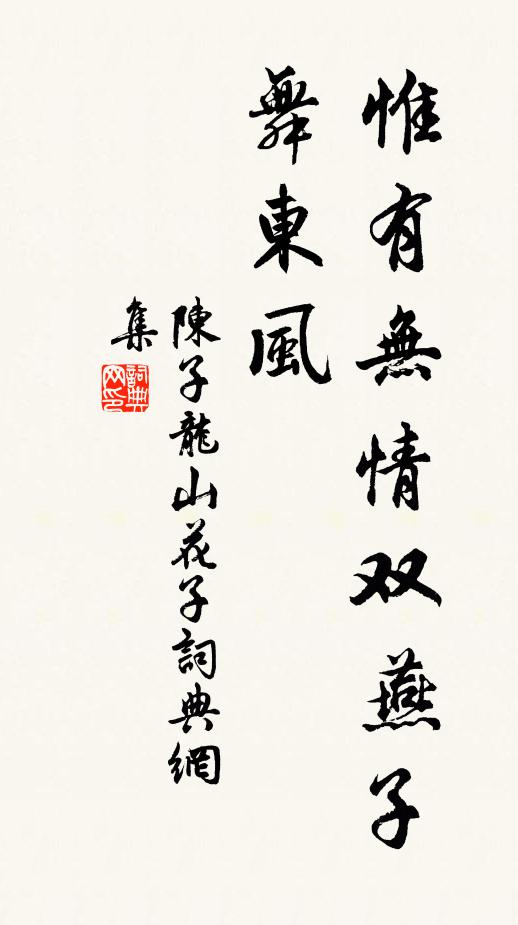 惟有無情双燕子
舞東風
陳子龍山花子詞典網
集
詞典
网印